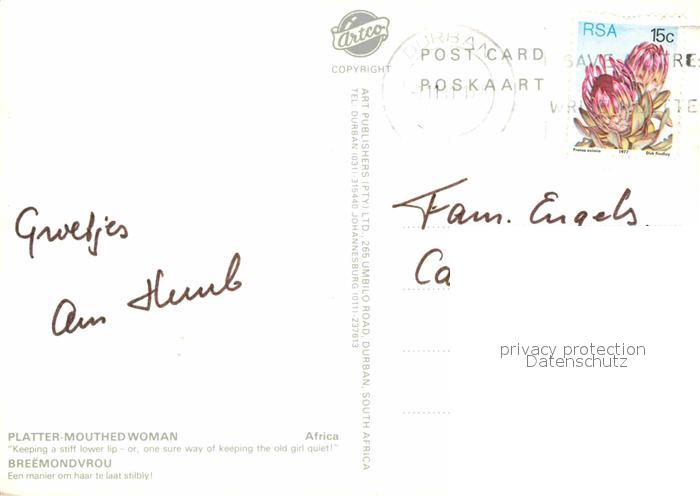 Artco
COPYRIGHT
POST CARD
POSKAART
DURBAN
RSA 15c
1977
Dick Findlay
ART PUBLISHERS (PTY) LTD., 265 UMBILO ROAD, DURBAN, SOUTH AFRICA
TEL: DURBAN (031)-315440 JOHANNESBURG (011)-237613
Groetjes
Fam. Engels
Ca
privacy protection
Datenschutz
PLATTER-MOUTHED WOMAN Africa
"Keeping a stiff lower lip – or, one sure way of keeping the old girl quiet!"
BREËMONDVROU
Een manier om haar te laat stilbly!